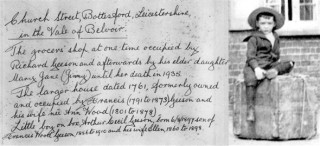 Church Street, Bottesford, Leicestershire,
in the Vale of Belvoir.
The grocers' shop at one time occupied by
Richard Geeson and afterwards by his elder daughter
Mary Jane (Jinny) until her death in 1935.
The larger house dated 1761, formerly owned
and occupied by Francis (1791 to 1873) Geeson and
his wife née Ann Wood (1801 to 1878)
Little boy on box, Arthur Cecil Geeson, born son of
Francis Wood Geeson and his wife Ellen, 1860 to 1898.